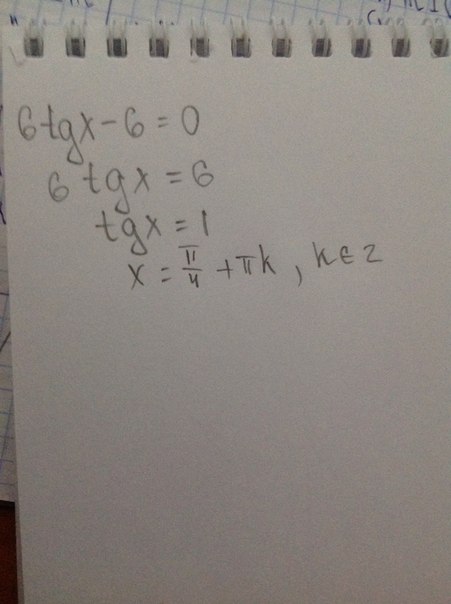 6 tgx - 6 = 0
6 tgx = 6
tgx = 1
x = π/4 + πk, k ∈ z